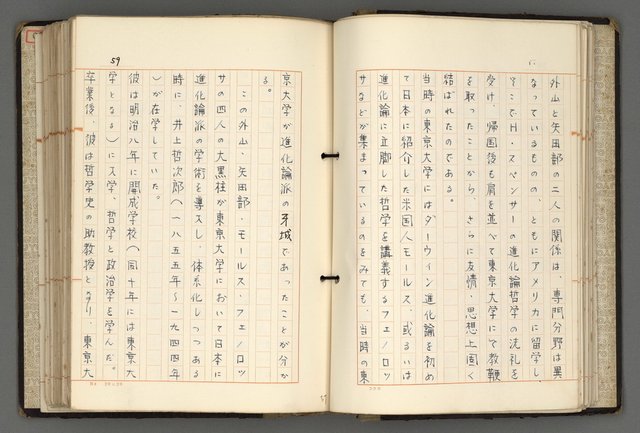 外山と矢田部の二人の関係は、専門分野は異
なっているものの、ともにアメリカに留学し、
そこでH・スペンサーの進化論哲学の洗礼を
受け、帰国後も肩を並べて東京大学にて教鞭
を取ったことから、さらに友情・思想上固く
結ばれたのである。
当時の東京大学にはダーウィン進化論を初め
て日本に紹介した米国人モールス、或るいは
進化論に立脚した哲学を講義するフェノロッ
サなどが集まっているのをみても、当時の東
59
京大学が進化論派の牙城であったことが分か
る。
この外山・矢田部・モールス・フェノロッ
サの四人の大黒柱が東京大学において日本に
進化論派の学術を導入し、体系化しつつある
時に、井上哲次郎(一八五五年〜一九四四年
)が在学していた。
彼は明治八年に開成学校(同十年には東京大
学となる)に入学、哲学と政治学を学んだ。
卒業後、彼は哲学史の助教授となり、東京大